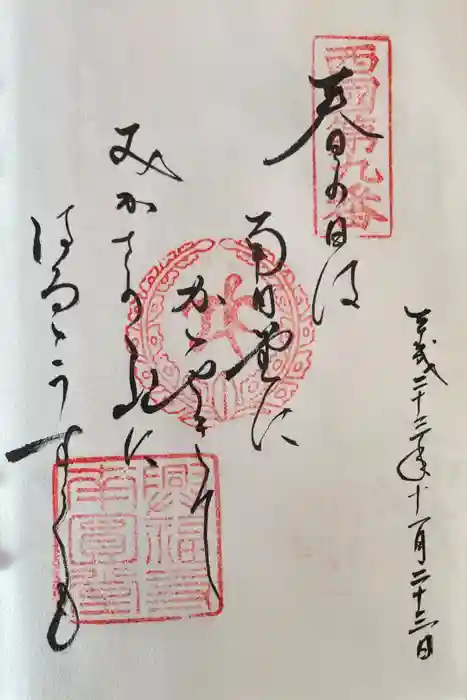 西國第九番
平成二十三年十一月二十三日
春の日は
南円堂に
かゝやきて
みかさの山に
はるゝうすくも
興福寺
南圓堂